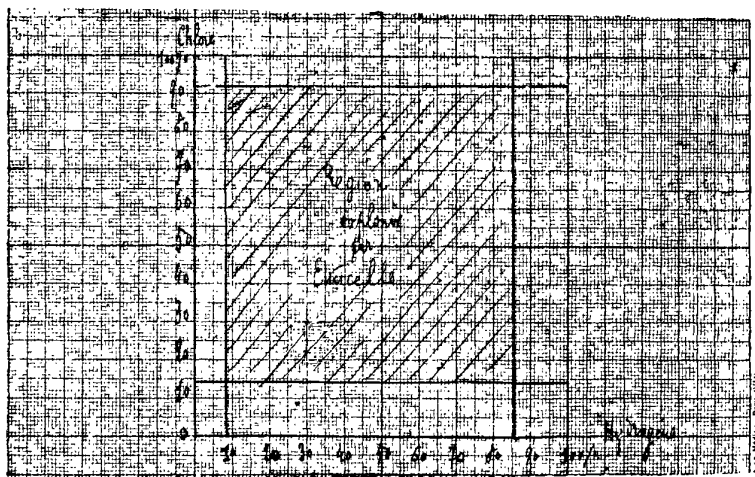 Chlore
100%
90
80
70
60
50
40
30
20
10
0
Region
explosive
par
Etincelle
10 20 30 40 50 60 70 80 90 100%
Hydrogène